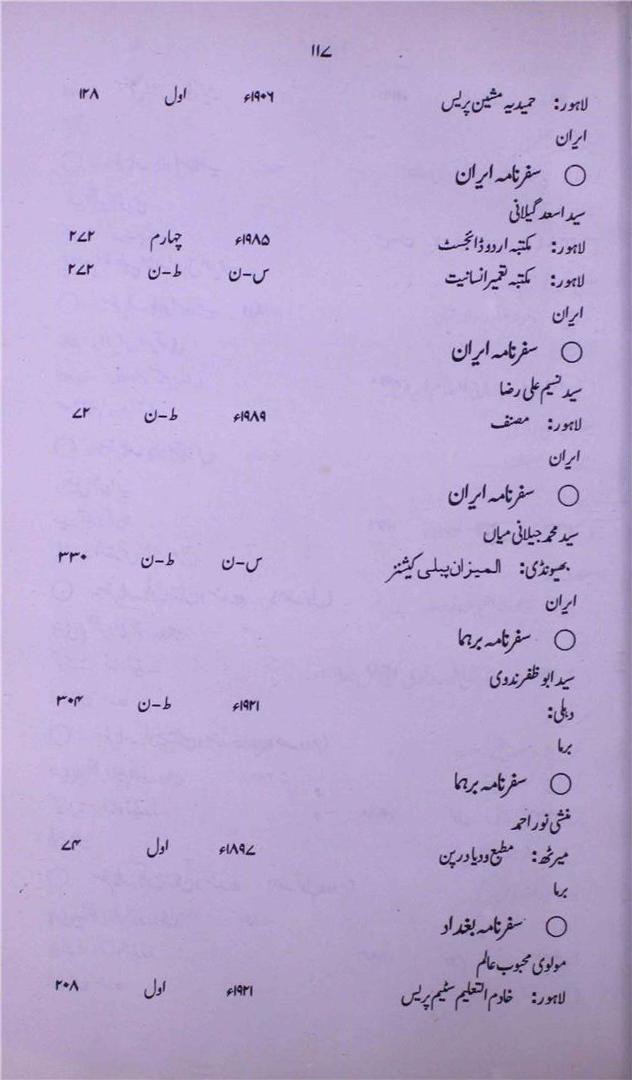 ۱۱۷
لاہور: حمیدیہ مشین پریس ۱۹۰۶ء اول ۱۲۸
ایران
○ سفرنامہ ایران
سید اسعد گیلانی
لاہور: مکتبہ اردو ڈائجسٹ ۱۹۸۵ء چہارم ۲۷۲
لاہور: مکتبہ تعمیر انسانیت س-ن ط-ن ۲۷۲
ایران
○ سفرنامہ ایران
سید نسیم علی رضا
لاہور: مصنف ۱۹۸۹ء ط-ن ۷۲
ایران
○ سفرنامہ ایران
سید محمد جیلانی میاں
بھیونڈی: المیزان پبلی کیشنز س-ن ط-ن ۳۳۰
ایران
○ سفرنامہ برہما
سید ابو ظفر ندوی
دہلی: ۱۹۲۱ء ط-ن ۳۰۴
برما
○ سفرنامہ برہما
منشی نور احمد
میرٹھ: مطبع ودیا درپن ۱۸۹۷ء اول ۷۴
برما
○ سفرنامہ بغداد
مولوی محبوب عالم
لاہور: خادم التعلیم سٹیم پریس ۱۹۲۱ء اول ۲۰۸